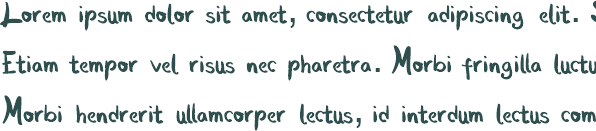 Lorem ipsum dolor sit amet, consectetur adipiscing elit.
Etiam tempor vel risus nec pharetra. Morbi fringilla luctu
Morbi hendrerit ullamcorper lectus, id interdum lectus com